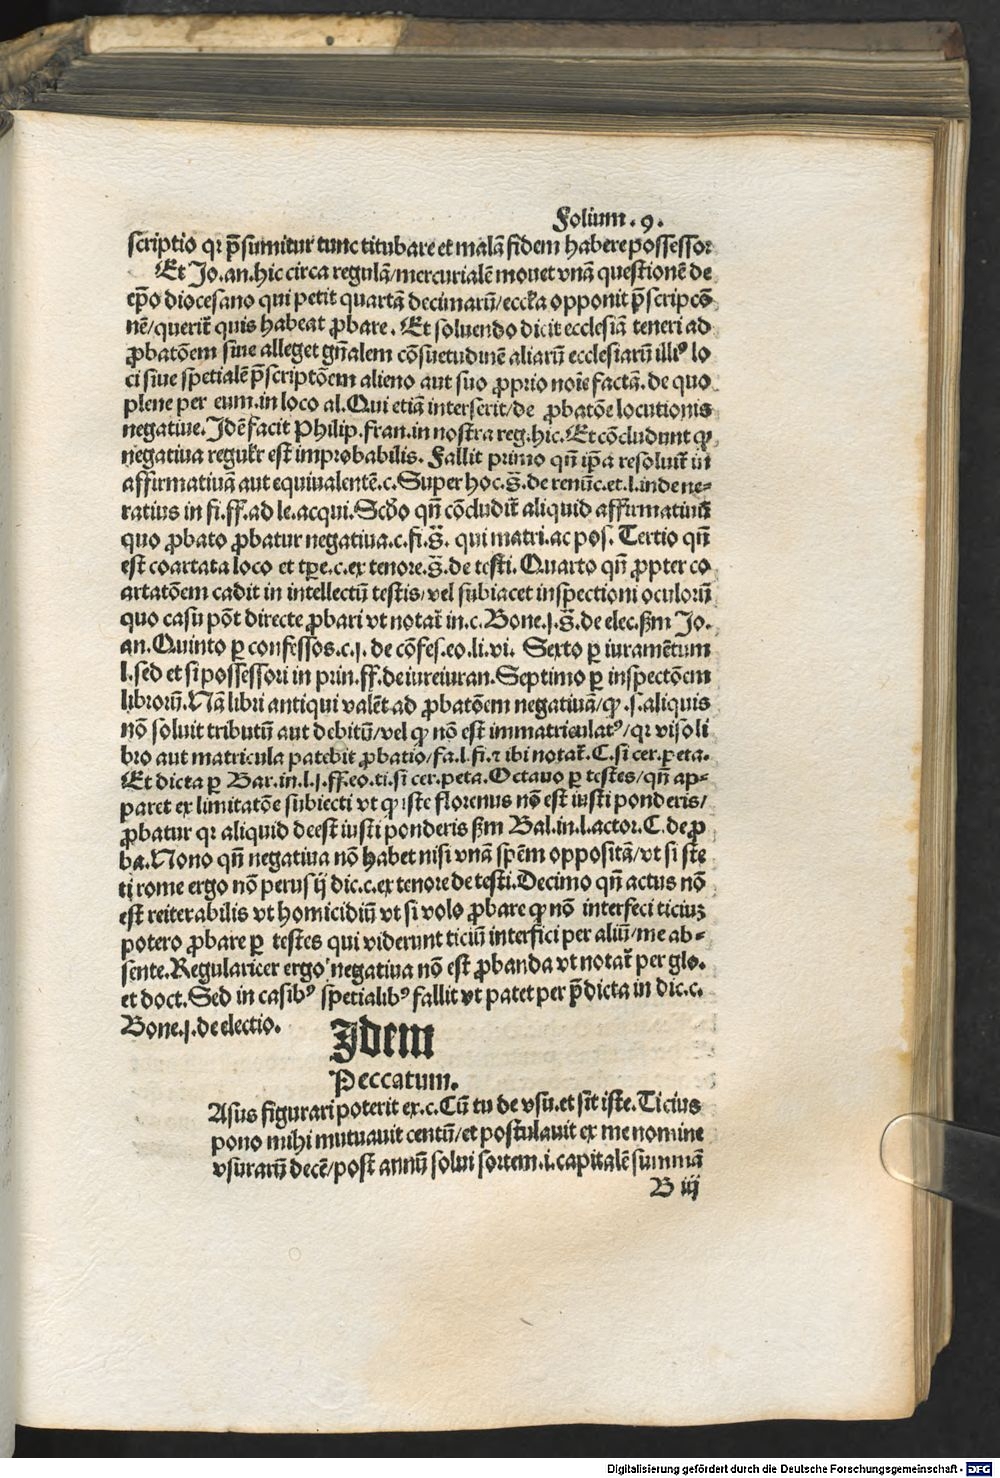 Folium.9.
scriptio qꝛ p̄sumitur tunc titubare et malā fidem habere possessoꝛ
Et Jo.an.hic circa regulā/mercurialē mouet vnā questionē de
ep̄o diocesano qui petit quartā decimarū/eccĺia opponit p̄scripcō
nē/querit̄ quis habeat ꝓbare. Et soluendo dicit ecclesiā teneri ad
ꝓbatōem siue alleget gn̄alem cōsuetudinē aliarū ecclesiarū illiꝰ lo
ci siue spetialē p̄scriptōem alieno aut suo ꝓprio noīe factā.de quo
plene per eum.in loco al.Qui etiā interserit/de ꝓbatōe locutionis
negatiue.Jdē facit Philip.fran.in nostra reg.hic.Et cōcludunt ꝙ
negatiua regulr̄ est improbabilis. Fallit primo qn̄ ip̄a resoluit̄ in
affirmatiuā aut equiualentē.c.Super hoc.s̄.de renūc.et.l.inde ne-
ratius in fi.ff.ad le.acqui.Scd̄o qn̄ cōcludit̄ aliquid affirmatiuū
quo ꝓbato ꝓbatur negatiua.c.fi.s̄. qui matri.ac pos. Tertio qn̄
est coartata loco et tp̄e.c.ex tenore.s̄.de testi.Quarto qn̄ ꝓpter co
artatōem cadit in intellectū testis/vel subiacet inspectioni oculorū
quo casu pōt directe ꝓbari vt notat̄ in.c.Bone.j.s̄.de elec.ẜm Jo.
an.Quinto ꝑ confessos.c.j.de cōfes.eo.li.vi. Sexto ꝑ iuramētum
l.sed et si possessori in prin.ff.de iureiuran.Septimo ꝑ inspectōem
librorū.Nā libri antiqui valēt ad ꝓbatōem negatiuā/ꝙ.s.aliquis
nō soluit tributū aut debitū/vel ꝙ nō est immatriculatꝰ/qꝛ viso li
bro aut matricula patebit ꝓbatio/fa.l.fi.⁊ ibi notat̄.C.si cer.peta.
Et dicta ꝑ Bar.in.l.j.ff.eo.ti.si cer.peta.Octauo ꝑ testes/qn̄ ap-
paret ex limitatōe subiecti vt ꝙ iste florenus nō est iusti ponderis/
ꝓbatur qꝛ aliquid deest iusti ponderis ẜm Bal.in.l.actor.C.de ꝓ
ba.Nono qn̄ negatiua nō habet nisi vnā spēm oppositā/vt si ste
ti rome ergo nō perusij dic.c.ex tenore de testi.Decimo qn̄ actus nō
est reiterabilis vt homicidiū vt si volo ꝓbare ꝙ nō interfeci ticiuꝫ
potero ꝓbare ꝑ testes qui viderunt ticiū interfici per aliū/me ab-
sente.Regulariter ergo negatiua nō est ꝓbanda vt notat̄ per glo.
et doct.Sed in casibꝰ spetialibꝰ fallit vt patet per p̄dicta in dic.c.
Bone.j.de electio.
Jdem
Peccatum.
Asus figurari poterit ex.c.Cū tu de vsu.et sit iste.Ticius
pono mihi mutuauit centū/et postulauit ex me nomine
vsurarū decē/post annū solui sortem.i.capitalē summā
B iij
Digitalisierung gefördert durch die Deutsche Forschungsgemeinschaft - DFG